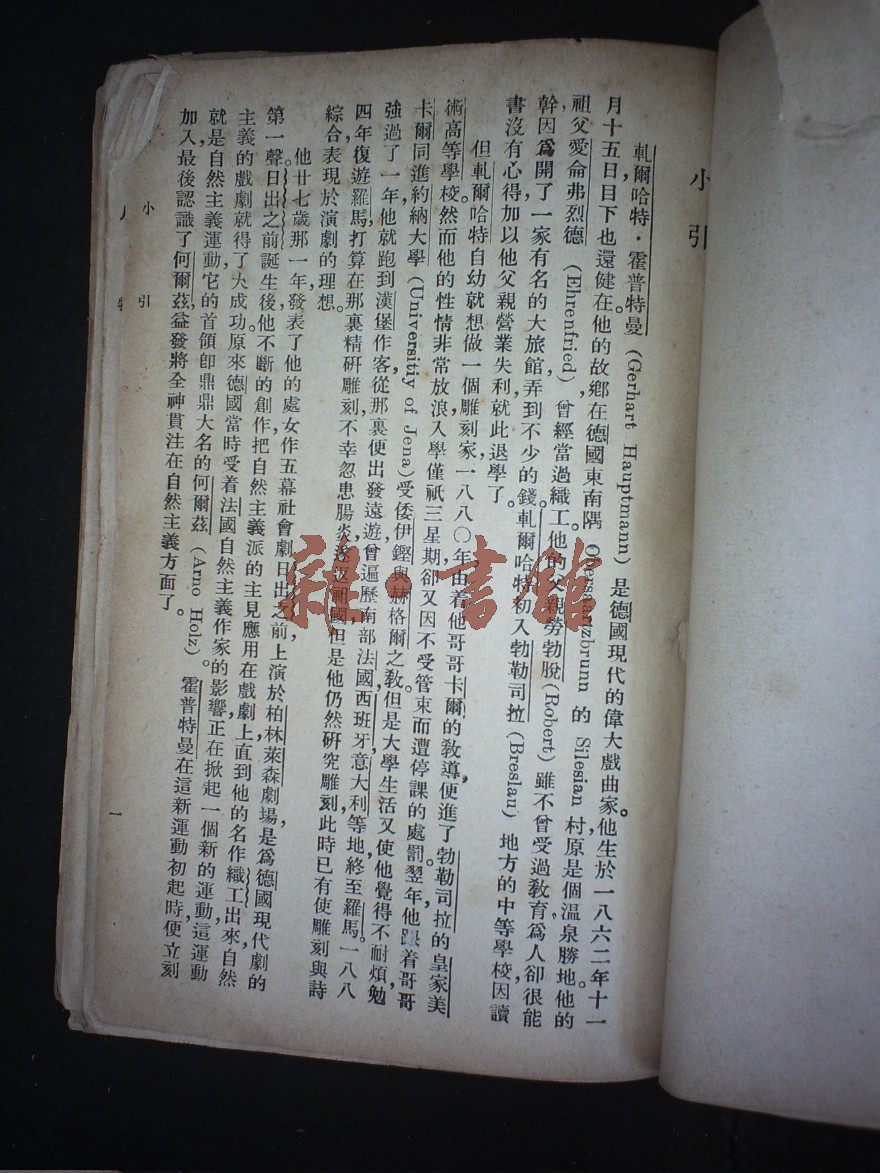 小引
軋爾哈特·霍普特曼(Gerhart Hauptmann)是德國現代的偉大戲曲家。他生於一八六二年十一
月十五日,目下也還健在他的故鄉,在德國東南隅 Obersalztzbrunn 的 Silesian 村,原是個溫泉勝地。他的
祖父愛侖弗烈德 (Ehrenfried) 曾經當過織工。他的父親勞勃脫(Robert)雖不曾受過敎育,爲人卻很能
幹,因爲開了一家有名的大旅館,弄到不少的錢。軋爾哈特初入勃勒司拉(Breslau) 地方的中等學校,因讀
書沒有心得,加以他父親營業失利,就此退學了。
但軋爾哈特自幼就想做一個雕刻家,一八八〇年,由着他哥哥卡爾的敎導,便進了勃勒司拉的皇家美
術高等學校。然而他的性情非常放浪,入學僅祇三星期,卻又因不受管束而遭停課的處罰。翌年,他跟着哥哥
卡爾同進約納大學(Universitiy of Jena)受倭伊鏗與赫格爾之敎。但是大學生活又使他覺得不耐煩,勉
強過了一年,他就跑到漢堡作客,從那裏便出發遠遊,曾遍歷南部法國,西班牙,意大利等地,終至羅馬。一八八
四年復遊羅馬,打算在那裏精硏雕刻,不幸忽患腸炎,遂返祖國。但是他仍然硏究雕刻,此時已有使雕刻與詩
綜合表現於演劇的理想。
他廿七歲那一年,發表了他的處女作五幕社會劇日出之前,上演於柏林萊森劇場,是爲德國現代劇的
第一聲。日出之前誕生後,他不斷的創作,把自然主義派的主見應用在戲劇上,直到他的名作織工出來,自然
主義的戲劇就得了大成功。原來德國當時受着法國自然主義作家的影響,正在掀起一個新的運動,這運動
就是自然主義運動,它的首領卽鼎鼎大名的何爾茲 (Arno Holz)。霍普特曼在這新運動初起時,便立刻
加入,最後認識了何爾茲,益發將全神貫注在自然主義方面了。
小引
一
雜·書館